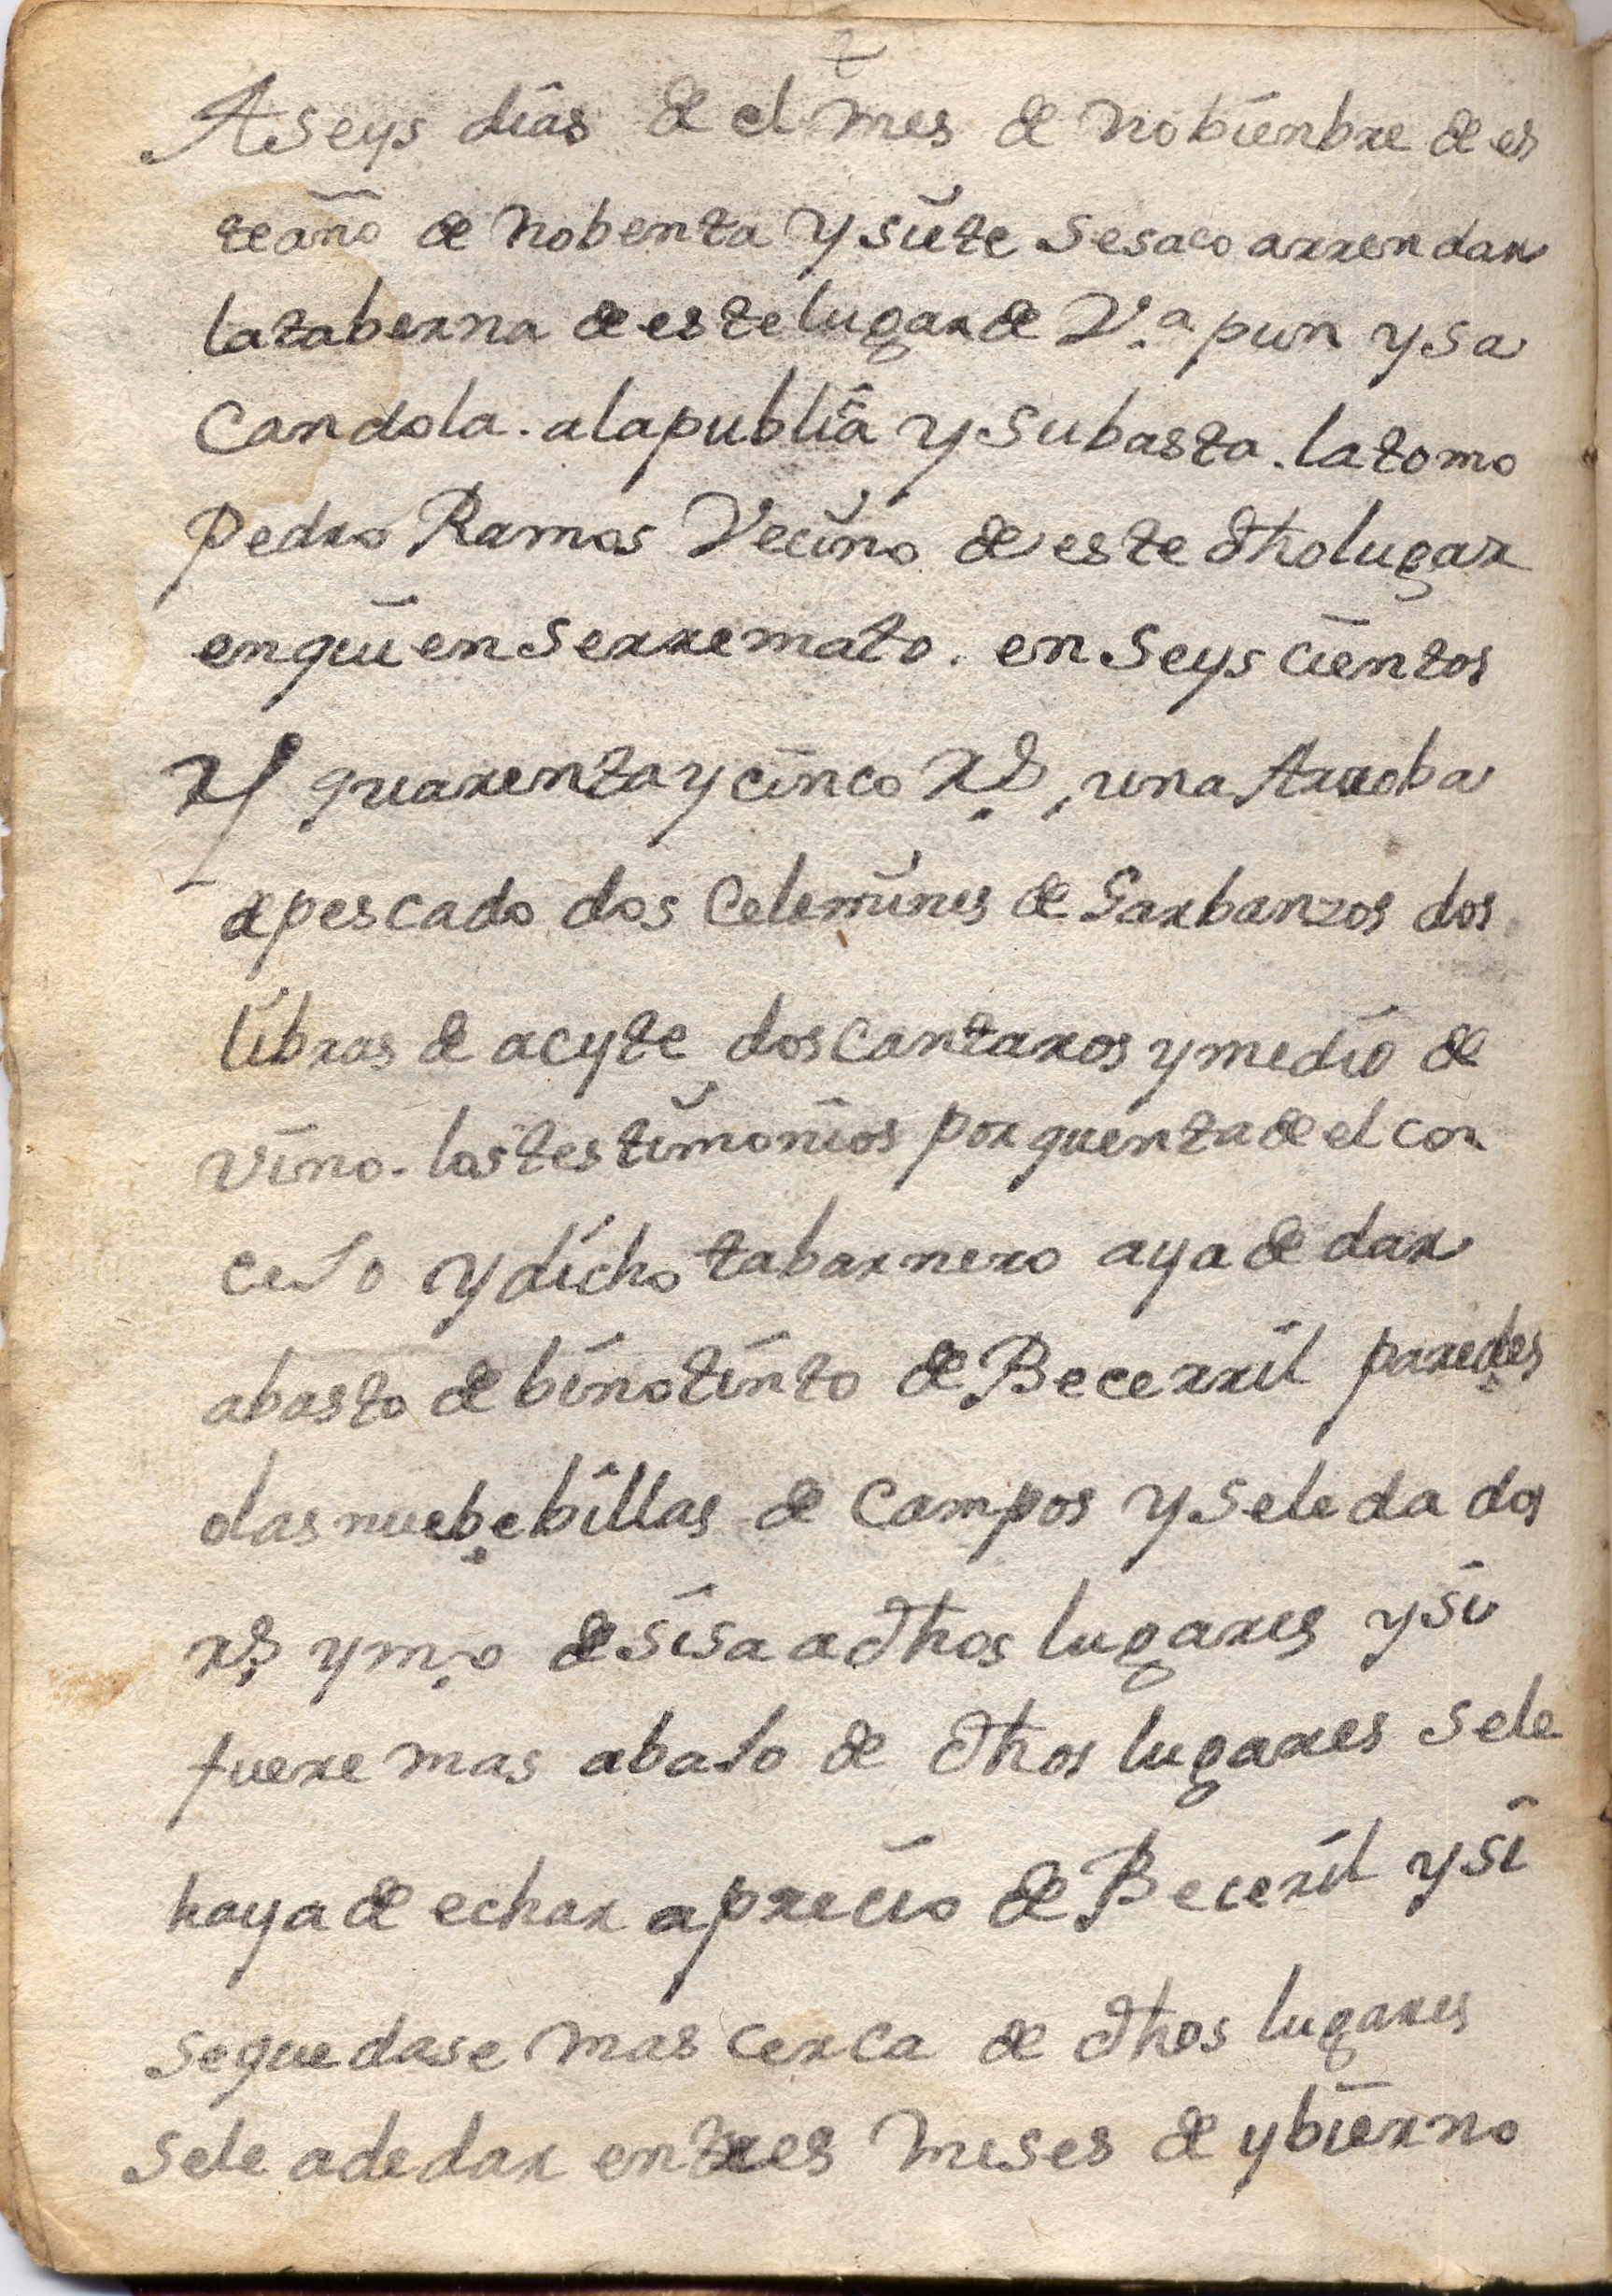 A seys dias de el mes de nobienbre de es
te año de nobenta y siete se saco arrendar
la taberna de este lugar de V.ª pun y sa
candola. a la publica y subasta. la tomo
Pedro Ramos Vecino de este dho lugar
en quien se rremato. en seys cientos
y quarenta y cinco Rs, una Arroba
de pescado dos celemines de Garbanzos dos
libras de acyte dos cantaros y medio de
vino. los testimonios por quenta de el con
cejo y dicho tabarnero aya de dar
abasto de bino tinto de Becerril paredes
o las nuebe billas de campos y se le da dos
rs y mo de sisa a dhos lugares y si
fuere mas abajo de dhos lugares se le
haya de echar a precio de Beceril y si
se quedase mas cerca de dhos lugares
se le a de dar en tres meses de ybierno